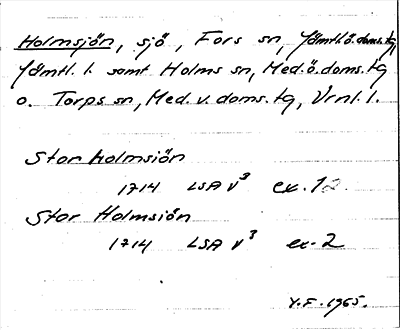 Holmsjön, sjö, Fors sn, Jämtl.ö.doms.tg,
Jämtl. l. samt Holms sn, Med.ö.doms.tg
o. Torps sn, Med.v.doms.tg, Vrnl.l.
Stor holmsiön
1714 LSA V³ ex. 12
Stor Holmsiön
1714 LSA V³ ex. 2
V.F. 1965.